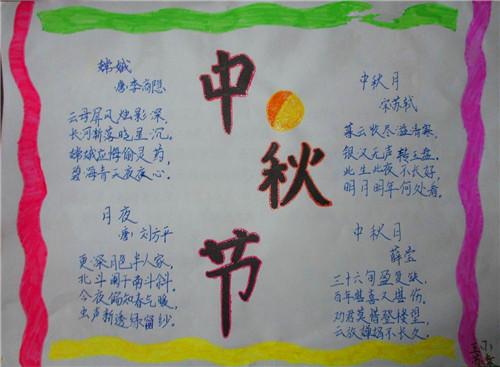 中秋节
嫦娥
唐 李商隐
云母屏风烛影深,
长河渐落晓星沉。
嫦娥应悔偷灵药,
碧海青天夜夜心。
月夜
唐 刘方平
更深月色半人家,
北斗阑干南斗斜。
今夜偏知春气暖,
虫声新透绿窗纱。
中秋月
宋 苏轼
暮云收尽溢清寒,
银汉无声转玉盘。
此生此夜不长好,
明月明年何处看。
中秋月
薛莹
三十六旬盈复缺,
百年堪喜又堪伤。
劝君莫惜登楼望,
云放婵娟不久长。